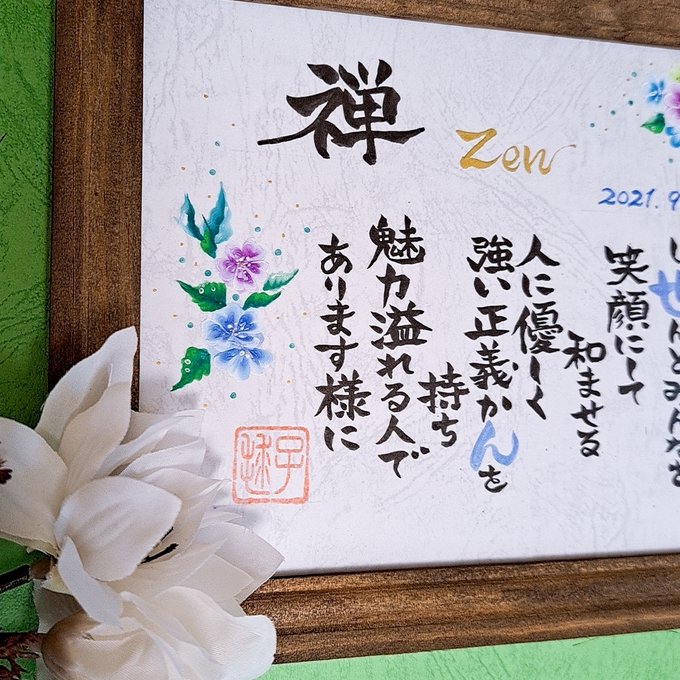 禅
Zen
2021.9
しぜんとみんなを
笑顔にして
和ませる
人に優しく
強い正義かんを
持ち
魅力溢れる人で
あります様に